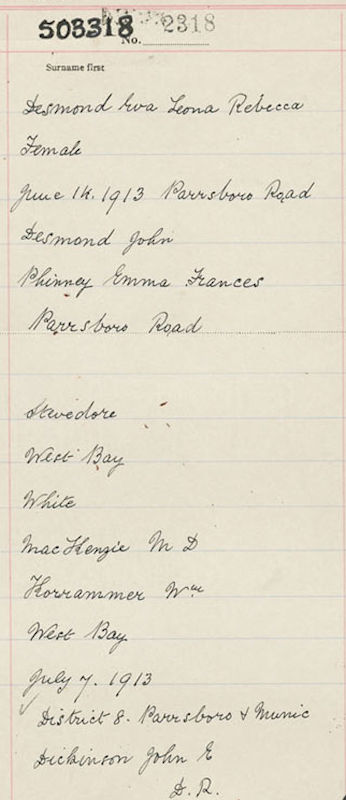 503318 No. 2318
Surname first
Desmond Eva Leona Rebecca
Female
June 14. 1913 Parrsboro Road
Desmond John
Phinney Emma Frances
Parrsboro Road
Stevedore
West Bay
White
MacKenzie M D
Wm
West Bay
July 7. 1913
District 8. Parrsboro & Munic
Dickinson John E
D. R.